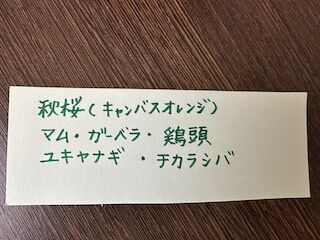 秋桜(キャンバスオレンジ)
マム・ガーベラ・鶏頭
ユキヤナギ・チカラシバ